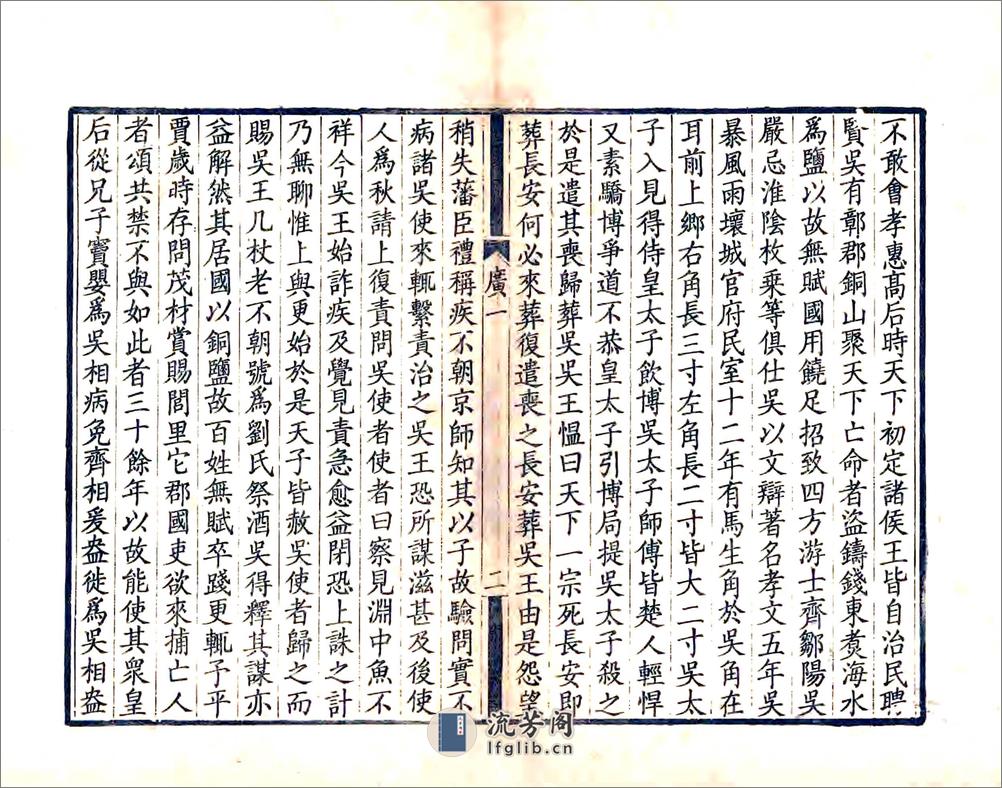 不敢會孝惠髙后時天下初定諸侯王皆自治民聘
賢吳有鄣郡銅山聚天下亡命者盜鑄錢東煑海水
爲鹽以故無賦國用饒足招致四方游士齊鄒陽吳
嚴忌淮陰枚乗等俱仕吳以文辯著名孝文五年吳
暴風雨壞城官府民室十二年有馬生角於吳角在
耳前上鄉右角長三寸左角長二寸皆大二寸吳太
子入見得侍皇太子飲博吳太子師傅皆楚人輕悍
又素驕博爭道不恭皇太子引博局提吳太子殺之
於是遣其喪歸葬吳吳王愠曰天下一宗死長安即
葬長安何必來葬復遣喪之長安葬吳王由是怨望
廣一
二
稍失藩臣禮稱疾不朝京師知其以子故驗問實不
病諸吳使來輒繫責治之吳王恐所謀滋甚及後使
人爲秋請上復責問吳使者使者曰察見淵中魚不
祥今吳王始詐疾及覺見責急愈益閉恐上誅之計
乃無聊惟上與更始於是天子皆赦吳使者歸之而
賜吳王几杖老不朝號爲劉氏祭酒吳得釋其謀亦
益解然其居國以銅鹽故百姓無賦卒踐更輒予平
賈歲時存問茂材賞賜閭里它郡國吏欲來捕亡人
者頌共禁不與如此者三十餘年以故能使其衆皇
后從兄子竇嬰爲吳相病免齊相爰盎徙爲吳相盎
流芳阁
lfglib.cn